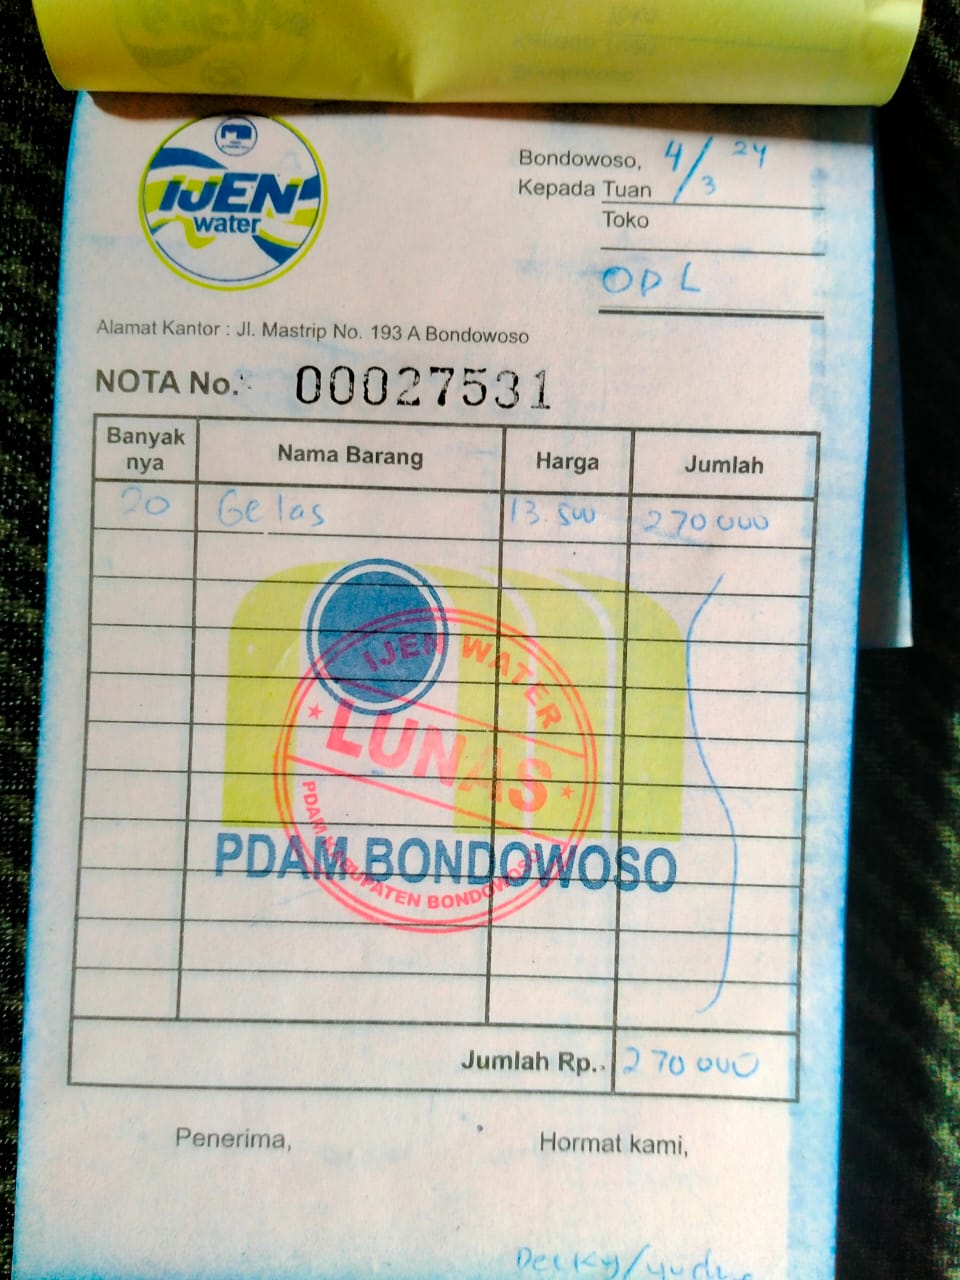 IJEN
water
Bondowoso, 4/3 24
Kepada Tuan
Toko
ODL
Alamat Kantor : Jl. Mastrip No. 193 A Bondowoso
NOTA No. 00027531
Banyak nya Nama Barang Harga Jumlah
20 Gelas 13.500 270 000
IJEN WATER
LUNAS
PDAM KABUPATEN BONDOWOSO
PDAM BONDOWOSO
Jumlah Rp. 270 000
Penerima, Hormat kami,